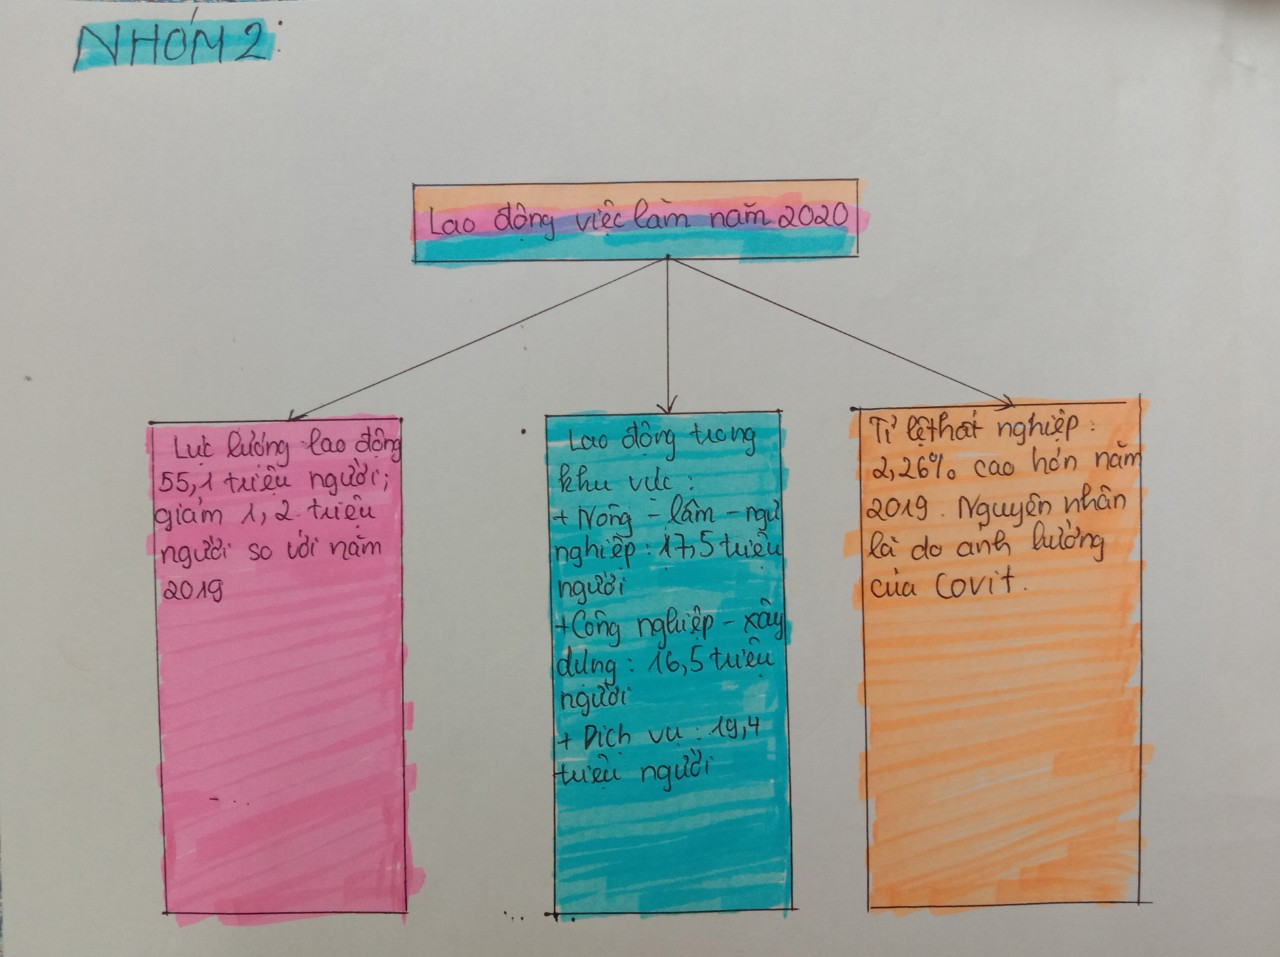 NHÓM 2:
Lao động việc làm năm 2020
Lực lượng lao động
55,1 triệu người;
giảm 1,2 triệu
người so với năm
2019
Lao động trong
khu vực :
+ Nông - lâm - ngư
nghiệp : 17,5 triệu
người
+ Công nghiệp - xây
dựng : 16,5 triệu
người
+ Dịch vụ : 19,4
triệu người
Tỉ lệ thất nghiệp :
2,26% cao hơn năm
2019. Nguyên nhân
là do ảnh hưởng
của Covit.